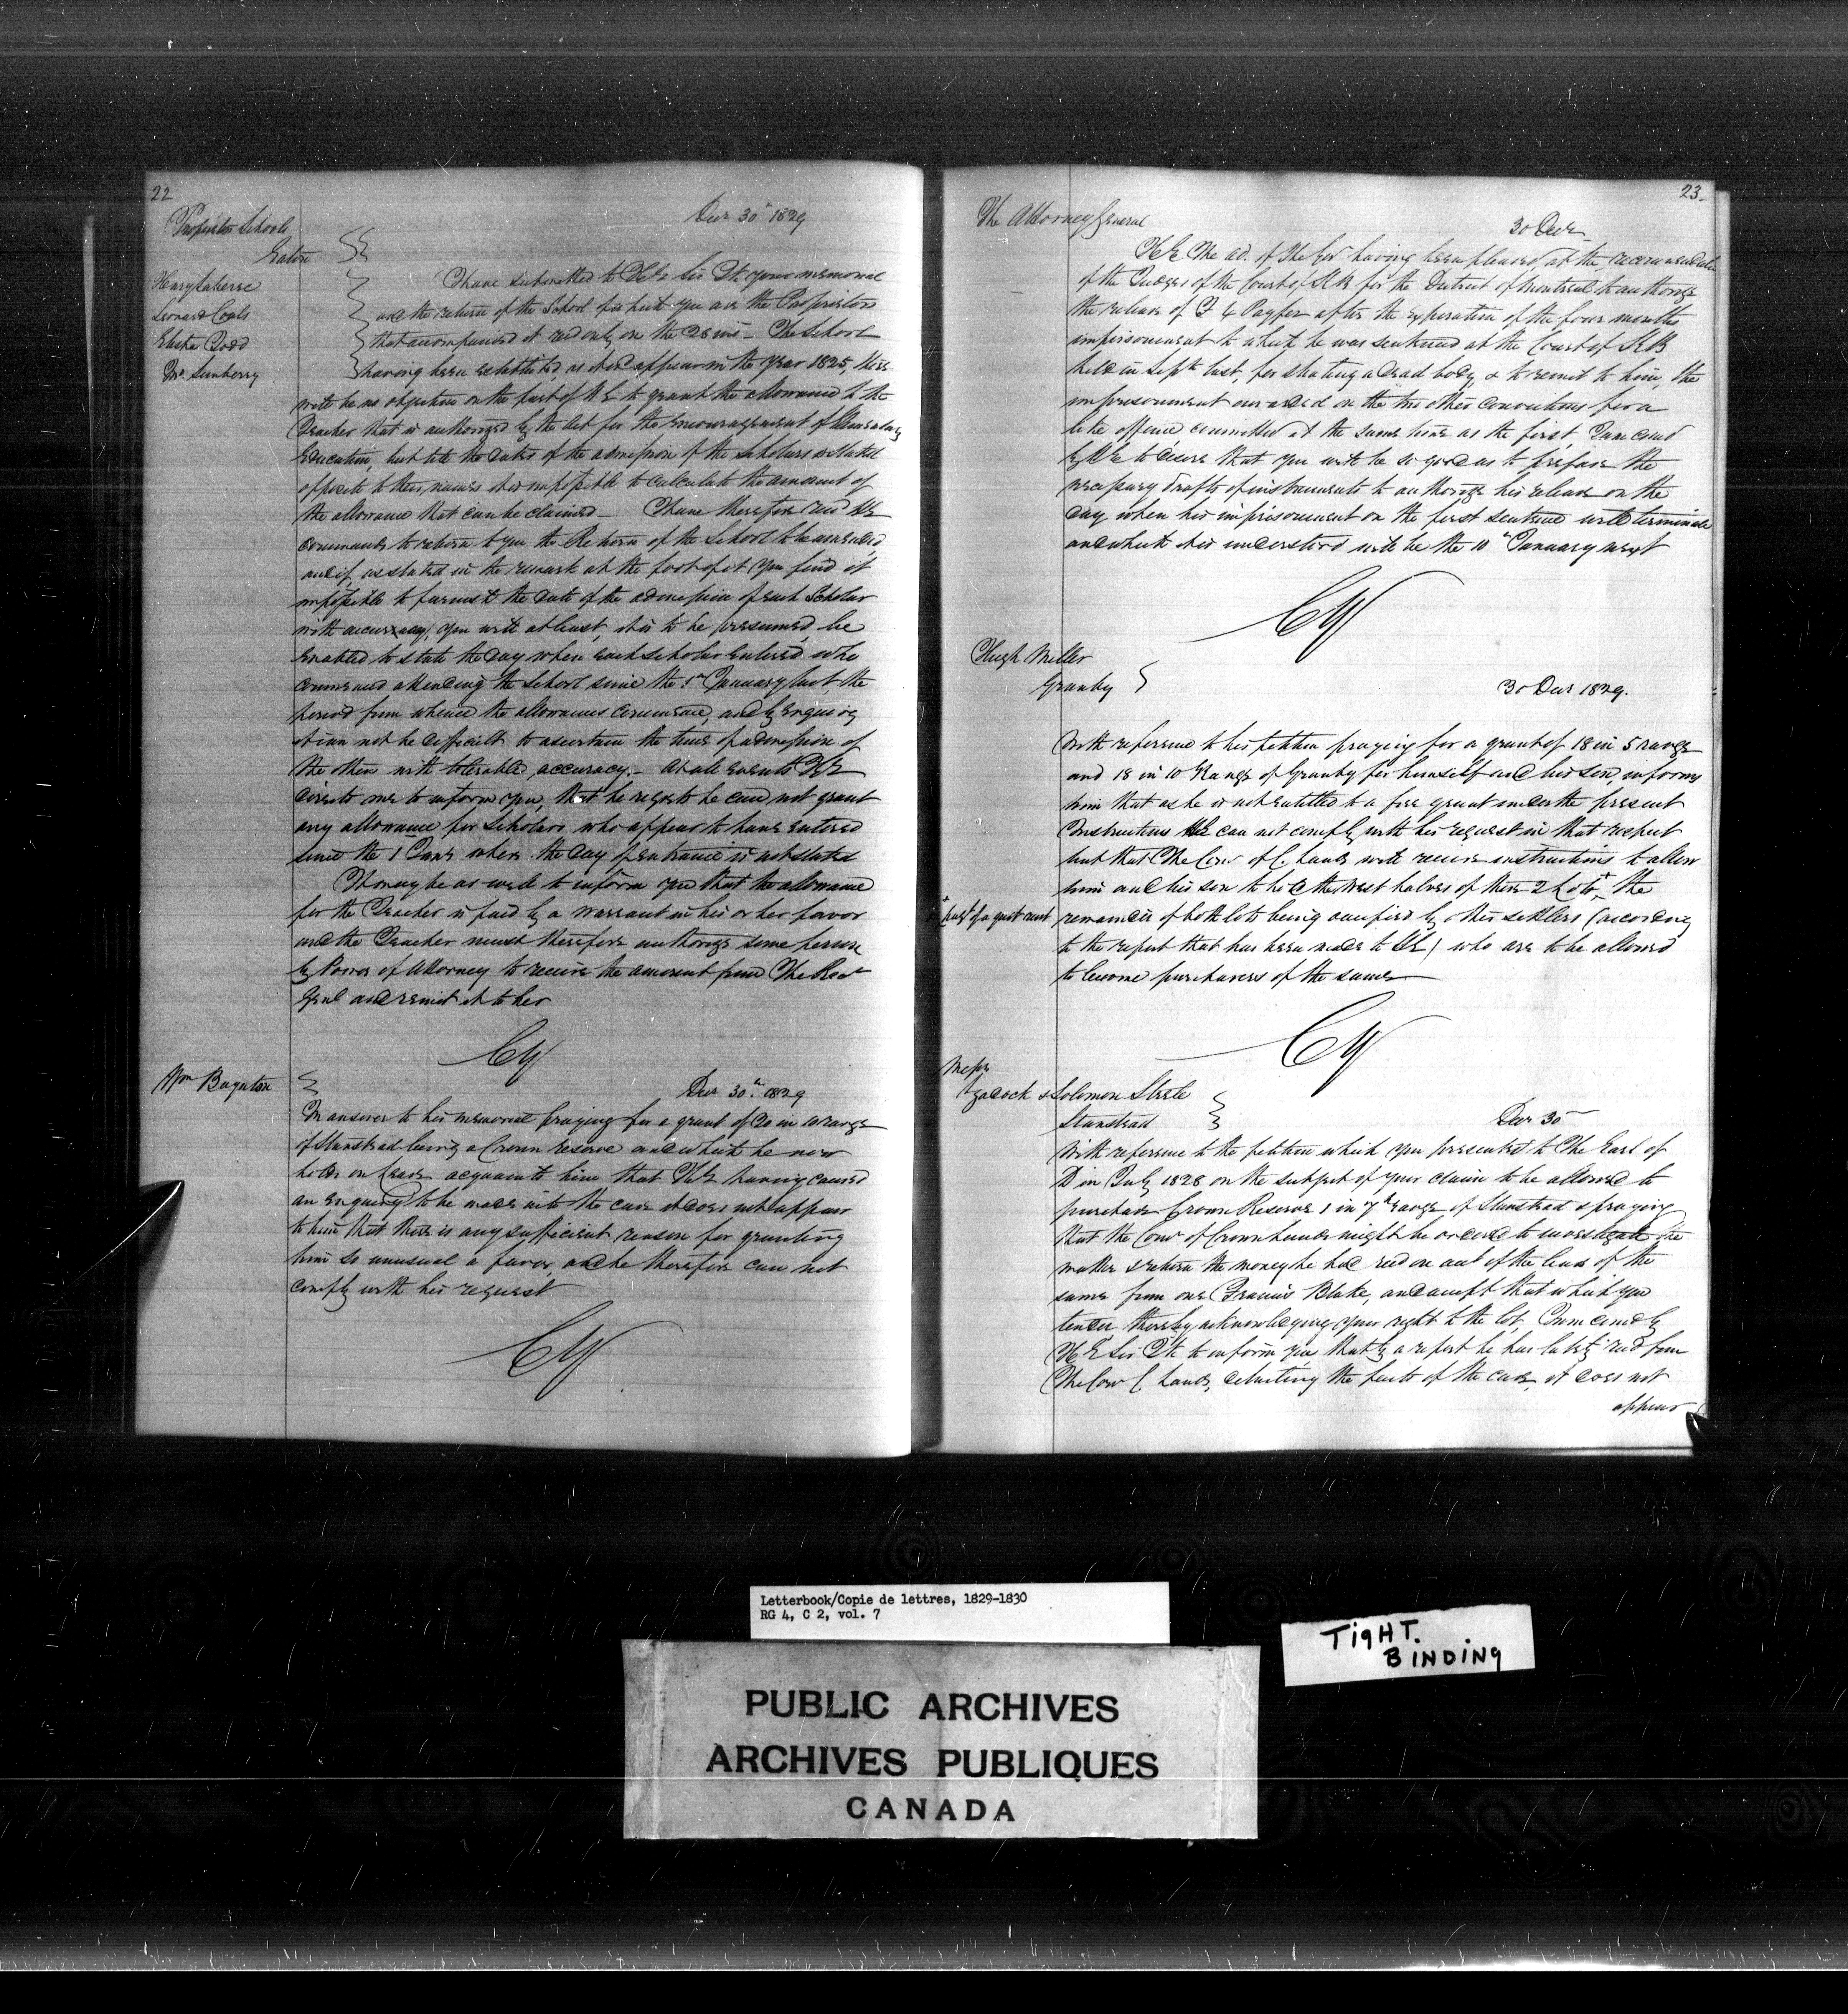 22
Decr 30th 1829
Proprietors Schools
Eaton
Henry Laberee
Leonard Cobb
Elisha Todd
Jno. Sunbury
I have submitted to His E Sir Jk your memorial
and the return of the School of which you are the Proprietors
that accompanied it recd only on the 28 ins - The School
having been established, as it would appear in the year 1825, there
will be no objection on the part of H E to grant the allowance to the
Teacher that is authorized by the Act for the Encouragement of Elementary
Education, but till the dates of the admission of the Scholars is stated
opposite to their names it is impossible to calculate the amount of
the allowance that can be claimed - I have therefore recd HE
commands to return to you the Return of the School to be amended,
and if, as stated in the remark at the foot of it you find it
impossible to furnish the date of the admission of each Scholar
with accuracy, you will at least, it is to be presumed, be
enabled to state the day when each scholar entered who
commenced attending the School since the 1st January last, the
period from whence the allowances commence, and by enquiry
it can not be difficult to ascertain the time of admission of
the others with tolerable accuracy. - At all events HE
directs me to inform you, that he regrets he can not grant
any allowance for Scholars who appear to have entered
since the 1 Jany when the day of entrance is not stated
It may be as well to inform you that the allowance
for the Teacher is paid by a warrant in his or her favor
and the Teacher must therefore authorize some person
by Power of Attorney to receive the amount from The Recr
Genl and remit it to her
CY
Wm Boynton
Decr 30th 1829
In answer to his memorial praying for a grant of 20 in 10 range
of Stanstead being a Crown reserve and which he now
holds on lease acquaints him that HE having caused
an enquiry to be made into the case it does not appear
to him that there is any sufficient reason for granting
him so unusual a favor, and he therefore can not
comply with his request
CY
23
The Attorney General
30 Decr
His E The ad. of the Govt having been pleased, at the recommendation
of the Judges of the Court of KB for the District of Montreal to authorize
the release of after the expiration of the four months
imprisonment to which he was sentenced at the Court of KB
held in Septr last, for stealing a dead body, & to remit to him, the
imprisonment awarded on the two other convictions for a
like offence committed at the same time as the first, I am comd
by HE to desire that you will be so good as to prepare the
necessary drafts of instruments to authorize his release on the
day when his imprisonment on the first sentence will terminate
and which it is understood will be the 10th January next
CY
Hugh Miller
Granby
30 Decr 1829.
With reference to his petition praying for a grant of 18 in 5 range
and 18 in 10 Range of Granby for himself and his son, informs
him that as he is not entitled to a free grant under the present
Instructions HE can not comply with his request in that respect
but that The Comr of C. Lands will receive instructions to allow
him and his son to hold the west halves of these 2 Lots, + the
+ in purst of a quit rent
remainder of both lots being occupied by other settlers (according
to the report that has been made to HE) who are to be allowed
to become purchasers of the same
CY
Messrs
Zadock & Solomon Steele
Stanstead
Decr 30
With reference to the petition which you presented to The Earl of
D in July 1828 on the subject of your claim to be allowed to
purchase Crown Reserve 1 in 7th range of Stanstead & praying
that the Comr of Crown Lands might be ordered to investigate the
matter & return the money he had recd on acct of the lease of the
same from one Francis Blake, and accept that which you
tender thereby acknowledging your right to the lot, I am comd by
H E Sir Jk to inform you that by a report he has lately recd from
The Com C Lands, detailing the facts of the case, it does not
appear
Letterbook/Copie de lettres, 1829-1830
RG 4, C 2, vol. 7
TIGHT.
BINDING
PUBLIC ARCHIVES
ARCHIVES PUBLIQUES
CANADA